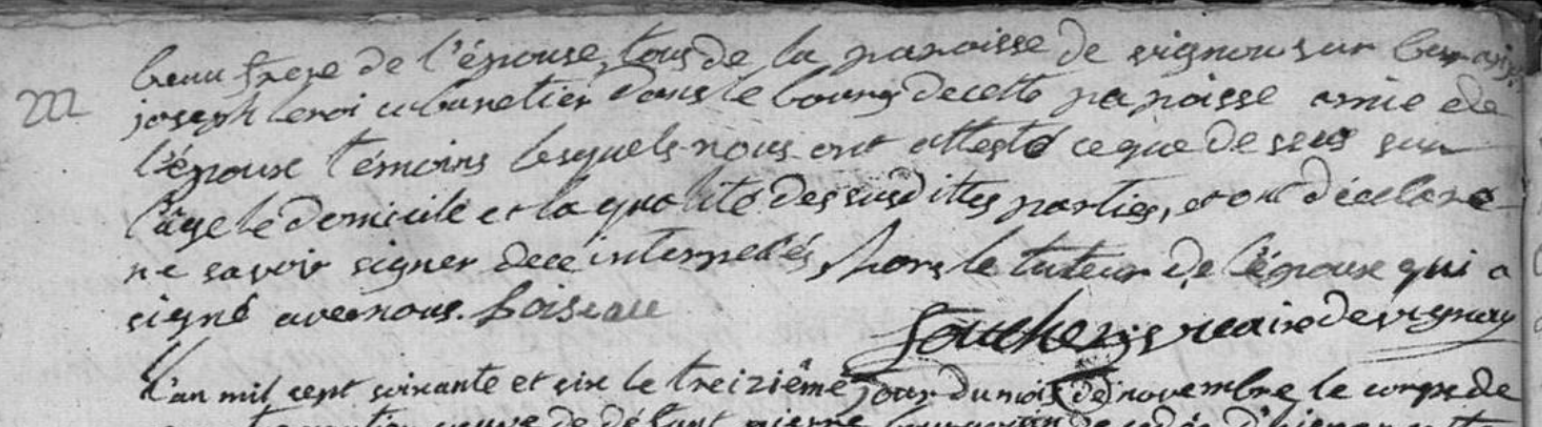 beau frere de l'épouse, tous de la paroisse de vignou sur
joseph leroi cabaretier dans le bourg de cette paroisse amie de
l'époux témoins lesquels nous ont attesté ce que dessus sur
l'âge le domicile et la qualité des susdittes parties, et ont déclaré
ne savoir signer de ce interpellés, hors le tuteur de l'époux qui a
signé avec nous. Loiseau
vicaire de vignoux
L'an mil cent soixante et six le treizième jour du mois de novembre le corps de
veuve de défunt pierre